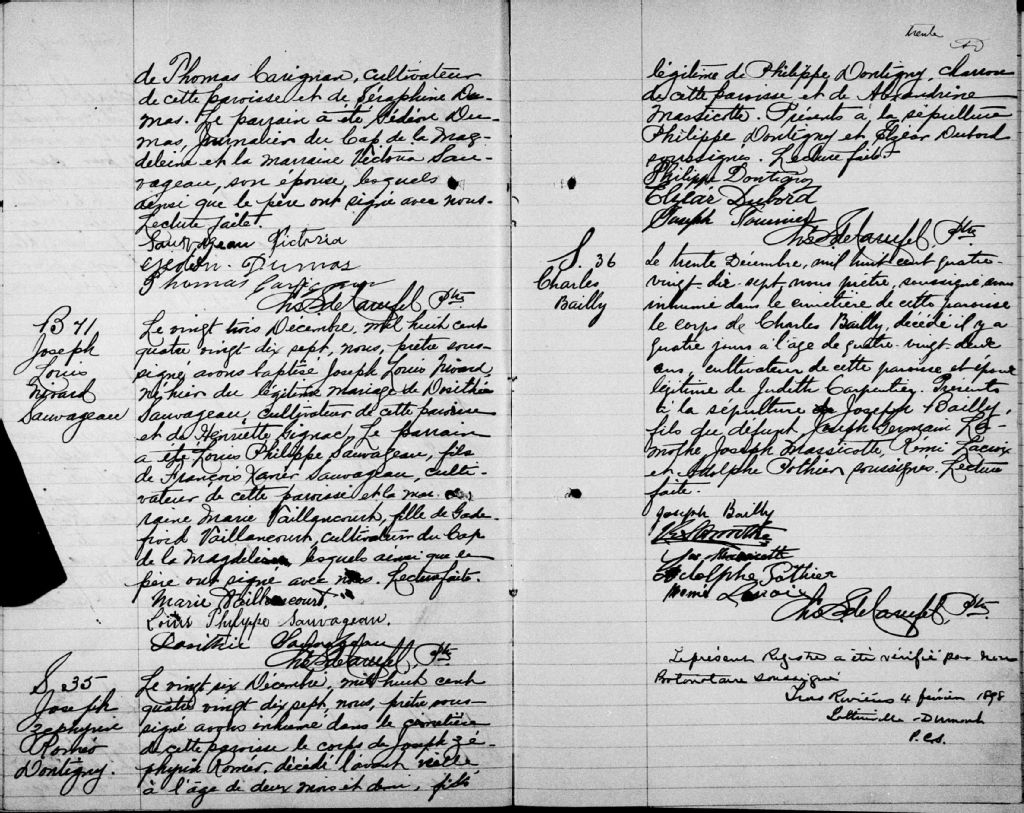 de Thomas Carignan, cultivateur
de cette paroisse et de Séraphine Du-
mas. Le parrain à été Gédéon Du-
mas, journalier du Cap de la Mag-
deleine et la marraine Victoria Sau-
vageau, son épouse, lesquels
ainsi que le père ont signé avec nous.
Lecture faite.
Sauvageau Victoria
Gedeon Dumas
Thomas Carignan
Ptre
B 71
Joseph
Louis
Nivard
Sauvageau
Le vingt trois Decembre, mil huit cent
quatre vingt dix sept, nous, prêtre sous-
signé avons baptisé Joseph Louis Nivard,
né hier du légitime mariage de Dosithée
Sauvageau, cultivateur de cette paroisse
et de Henriette Gignac, Le parrain
a été Louis Philippe Sauvageau, fils
de François Xavier Sauvageau, culti-
vateur de cette paroisse et la mar-
raine Marie Vaillancourt, fille de Gode-
froid Vaillancourt, cultivateur du Cap
de la Magdeleine, lesquels ainsi que le
père ont signé avec nous. Lecture faite.
Marie Vaillancourt.
Louis Philippe Sauvageau.
Dosithée Sauvageau
Ptre
S. 35
Joseph
Zephyrin
Roméo
Dontigny.
Le vingt six Décembre, mil huit cent
quatre vingt dix sept, nous, prêtre sous-
signé avons inhumé dans le cimetière
de cette paroisse le corps de Joseph Zé-
phyrin Roméo, décédé l'avant veille
à l'âge de deux mois et demi, fils
trente
légitime de Philippe Dontigny, charron
de cette paroisse et de Alexandrine
Massicotte. Présents à la sépulture
Philippe Dontigny et Elzéar Dubord
soussignés. Lecture faite.
Philippe Dontigny
Elzéar Dubord
Joseph Fournier
Ptre
S. 36
Charles
Bailly
Le trente Décembre, mil huit cent quatre-
vingt dix-sept nous prêtre, soussigné avons
inhumé dans le cimetière de cette paroisse
le corps de Charles Bailly, décédé il y a
quatre jours à l'âge de quatre-vingt-deux
ans, cultivateur de cette paroisse et époux
légitime de Judith Carpentier. Présents
à la sépulture Joseph Bailly,
fils du defunt, Joseph Germain La-
mothe Joseph Massicotte, Rémi Lacroix
et Adolphe Pothier soussignés. Lecture
faite.
Joseph Bailly
Jos Massicotte
Adolphe Pothier
Ptre
Le présent Registre a été vérifié par nous
Protonotaire soussigné
Trois Rivières 4 février 1898
P.C.S.